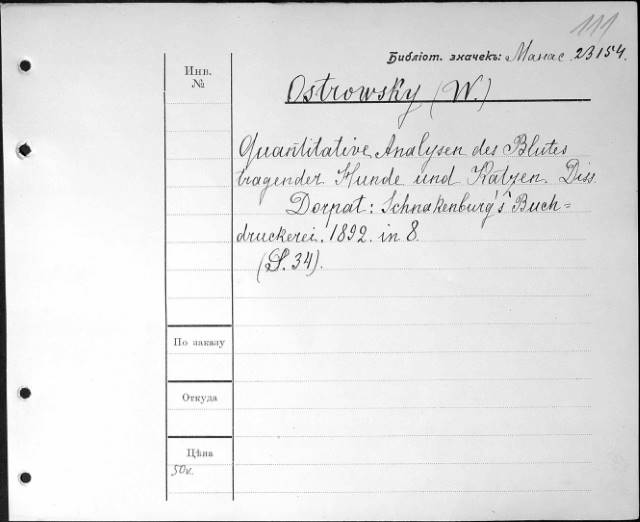 111
Библіот. значекъ: Манас 23154.
Инв.
№
Ostrowsky (W.)
Quantitative Analysen des Blutes
tragender Hunde und Katzen. Diss.
Dorpat: Schnakenburg's Buch=
druckerei. 1892. in 8.
(S. 34).
По заказу
Откуда
Цѣна
50к.